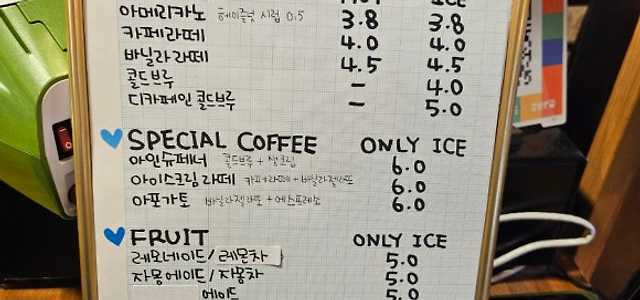 ICE
아메리카노 헤이즐넛 시럽 0.5 3.8 3.8
카페라떼 4.0 4.0
바닐라라떼 4.5 4.5
콜드브루 - 4.0
디카페인 콜드브루 - 5.0
SPECIAL COFFEE ONLY ICE
아인슈페너 콜드브루 + 생크림 6.0
아이스크림 라떼 카페라떼 + 바닐라젤라또 6.0
아포가토 바닐라젤라또 + 에스프레소 6.0
FRUIT ONLY ICE
레몬에이드/레몬차 5.0
자몽에이드/자몽차 5.0
에이드 5.0